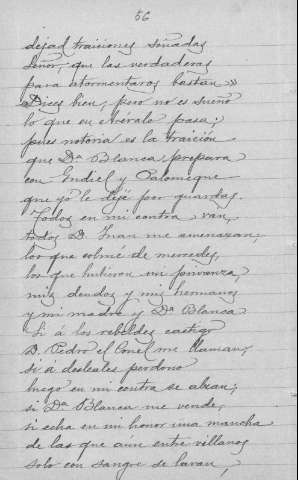 56
dejad traiciones soñadas
Señor, que las verdaderas
para atormentaros bastan»
«Dices bien, pero no es sueño
lo que en Arévalo pasa;
pues notoria es la traición
que Dª Blanca prepara
con Gudiel y Palomeque
que yo le dejé por guardas.
Todos en mi contra van,
todos D. Juan me amenazan;
los que colmé de mercedes,
los que hubieron mi privanza,
mis deudos y mis hermanos
y mi madre y Dª Blanca
Si á los rebeldes castigo
D. Pedro el Cruel me llaman,
si á desleales perdono
luego en mi contra se alzan;
si Dª Blanca me vende,
si echa en mi honor una mancha
de las que aún entre villanos
solo con sangre se lavan,